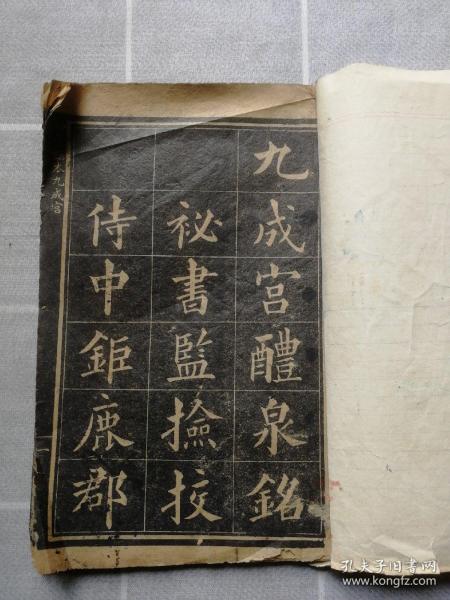 九成宫醴泉銘
祕書監撿挍
侍中鉅鹿郡
本九成宫
孔夫子旧书网
www.kongfz.com